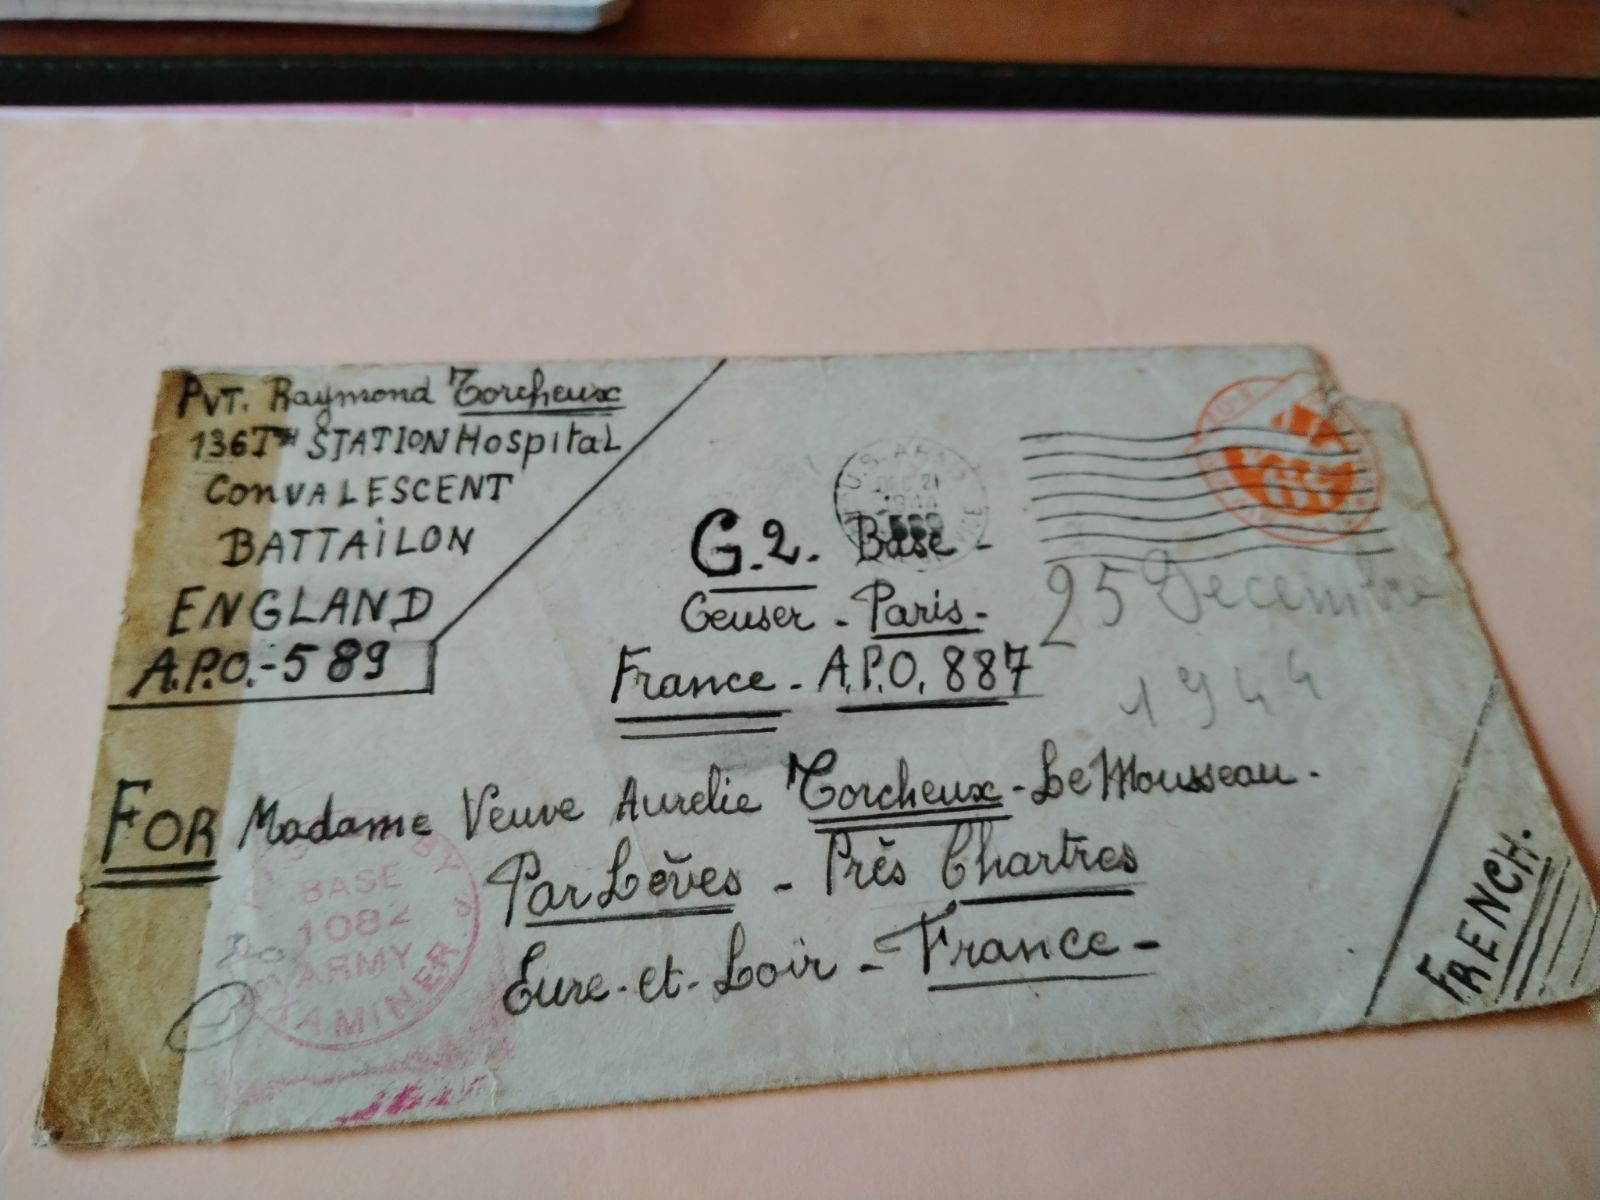 PVT. Raymond Torcheux
136TH STATION Hospital
CONVALESCENT
BATTAiLON
ENGLAND
A.P.O.-589
U.S. ARMY
DEC 21
1944
G.2. Base -
Ceuser - Paris -
France - A.P.O. 887
25 Decembre
1944
FOR Madame Veuve Aurelie Torcheux - Le Mousseau.
Par Lèves - Près Chartres
Eure-et-Loir - France -
BY
BASE
1082
ARMY
EXAMINER
FRENCH.